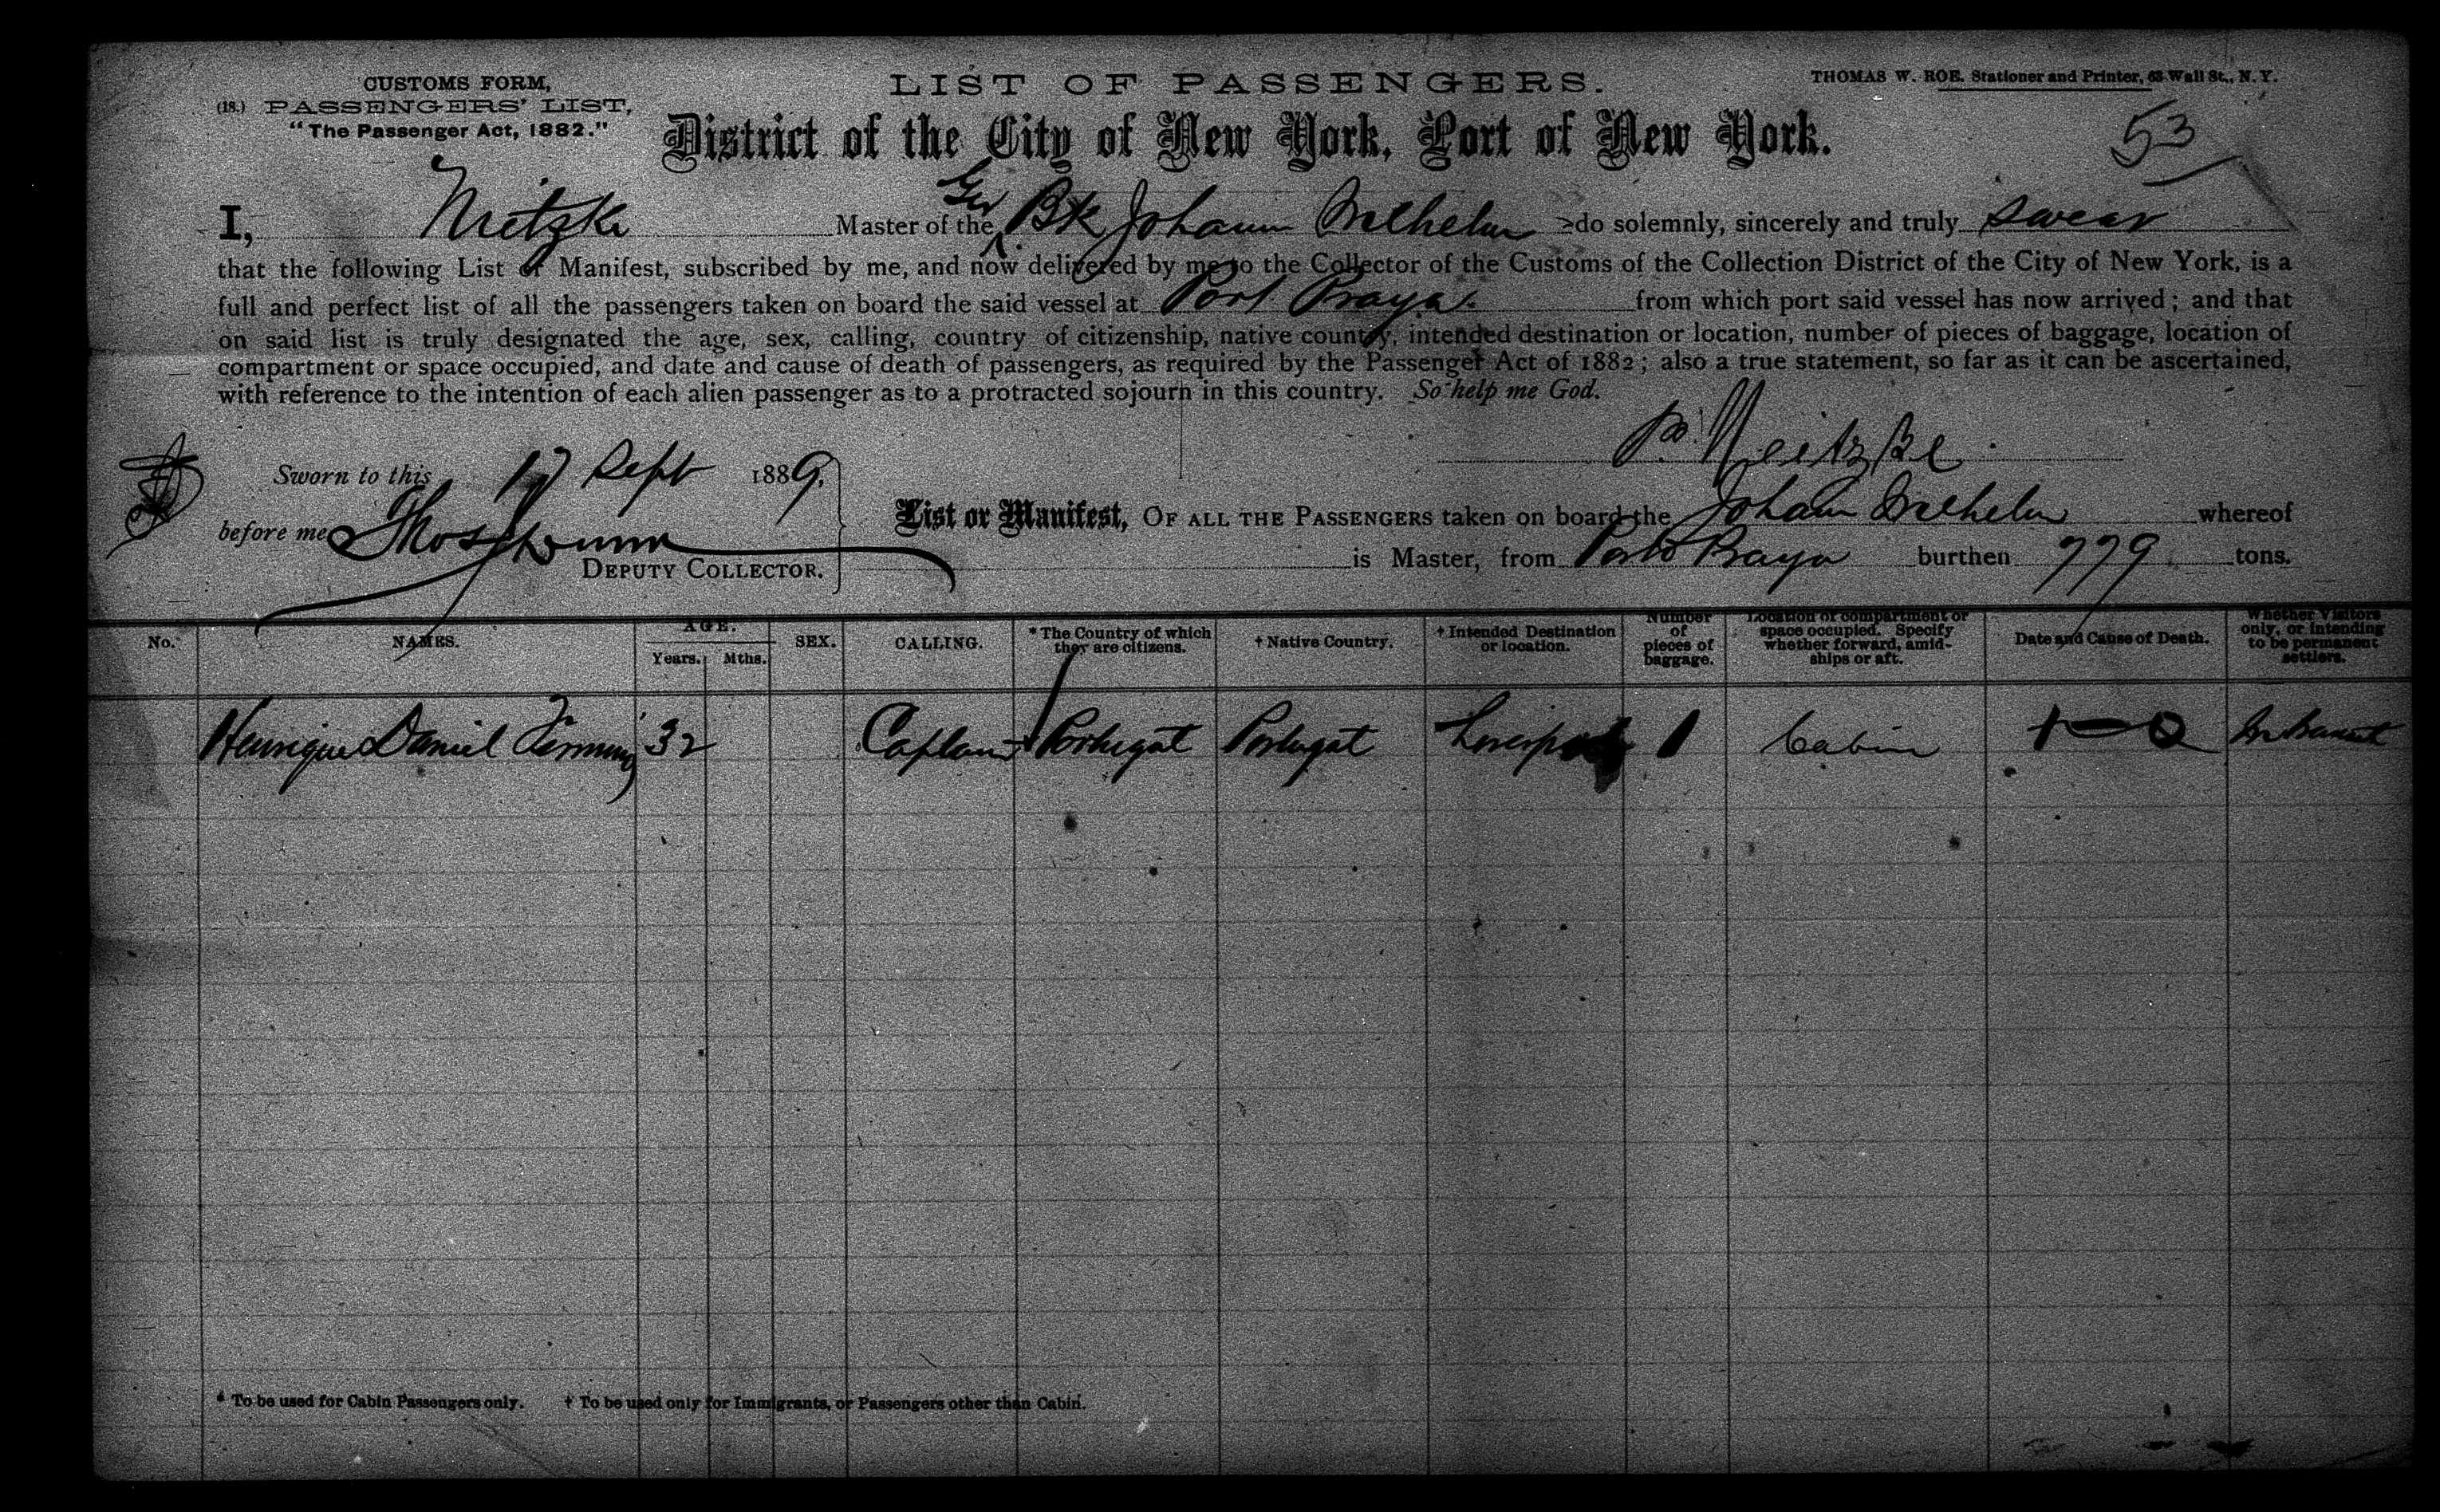 CUSTOMS FORM,
(18.) PASSENGERS' LIST,
"The Passenger Act, 1882."
LIST OF PASSENGERS.
THOMAS W. ROE. Stationer and Printer, 63 Wall St., N. Y.
District of the City of New York, Port of New York.
53
I, Nietzke Master of the Ger Bk Johann Wilhelm do solemnly, sincerely and truly swear
that the following List or Manifest, subscribed by me, and now delivered by me to the Collector of the Customs of the Collection District of the City of New York, is a
full and perfect list of all the passengers taken on board the said vessel at Port Praya from which port said vessel has now arrived; and that
on said list is truly designated the age, sex, calling, country of citizenship, native county, intended destination or location, number of pieces of baggage, location of
compartment or space occupied, and date and cause of death of passengers, as required by the Passenger Act of 1882; also a true statement, so far as it can be ascertained,
with reference to the intention of each alien passenger as to a protracted sojourn in this country. So help me God.
P. Neitzke
Sworn to this 17 Sept 1889.
before me Thos Dunn
DEPUTY COLLECTOR.
List or Manifest, OF ALL THE PASSENGERS taken on board the Johann Wilhelm whereof
is Master, from Porto Praya burthen 779 tons.
No. NAMES. AGE. Years. Mths. SEX. CALLING. * The Country of which they are citizens. † Native Country. † Intended Destination or location. Number of pieces of baggage. Location of compartment or space occupied. Specify whether forward, amidships or aft. Date and Cause of Death. Whether Visitors only, or intending to be permanent settlers.
Henrique Daniel 32 Portugal Portugal Liverpool 1 Cabin In transit
* To be used for Cabin Passengers only. † To be used only for Immigrants, or Passengers other than Cabin.